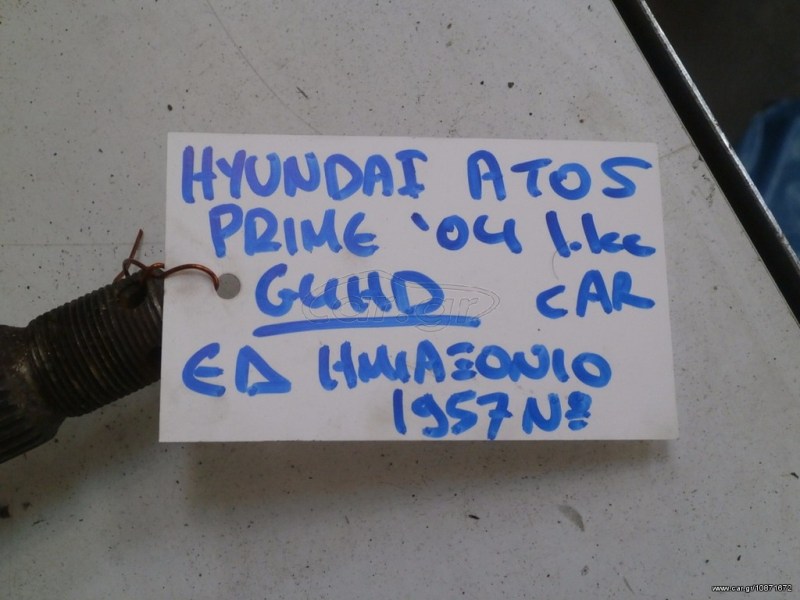 HYUNDAI ATOS
PRIME '04 1.1cc
G4HD CAR
ΕΔ ΗΜΙΑΞΟΝΙΟ
1957Νο
www.car.gr/10871672